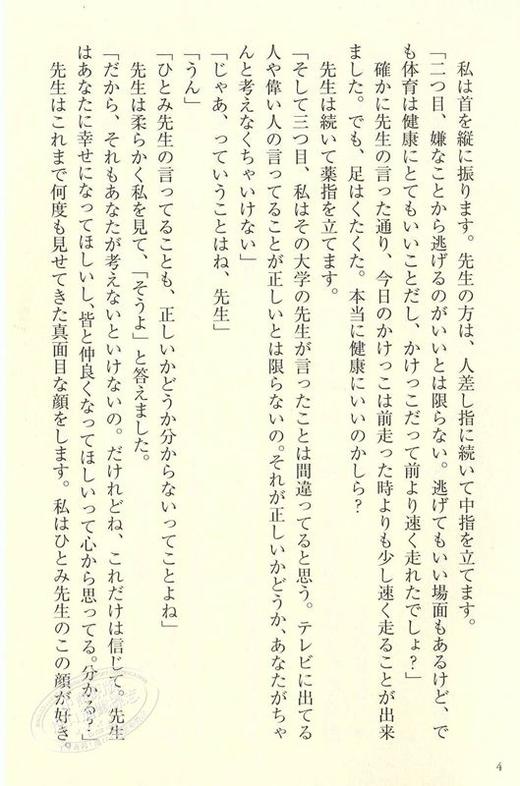 私は首を縦に振ります。先生の方は、人差し指に続いて中指を立てます。
「二つ目、嫌なことから逃げるのがいいとは限らない。逃げてもいい場面もあるけど、で
も体育は健康にとてもいいことだし、かけっこだって前より速く走れたでしょ？」
確かに先生の言った通り、今日のかけっこは前走った時よりも少し速く走ることが出来
ました。でも、足はくたくた。本当に健康にいいのかしら？
先生は続いて薬指を立てます。
「そして三つ目、私はその大学の先生が言ったことは間違ってると思う。テレビに出てる
人や偉い人の言ってることが正しいとは限らないの。それが正しいかどうか、あなたがちゃ
んと考えなくちゃいけない」
「じゃあ、っていうことはね、先生」
「うん」
「ひとみ先生の言ってることも、正しいかどうか分からないってことよね」
先生は柔らかく私を見て、「そうよ」と答えました。
「だから、それもあなたが考えないといけないの。だけれどね、これだけは信じて。先生
はあなたに幸せになってほしいし、皆と仲良くなってほしいって心から思ってる。分かる？」
先生はこれまで何度も見せてきた真面目な顔をします。私はひとみ先生のこの顔が好き。
4